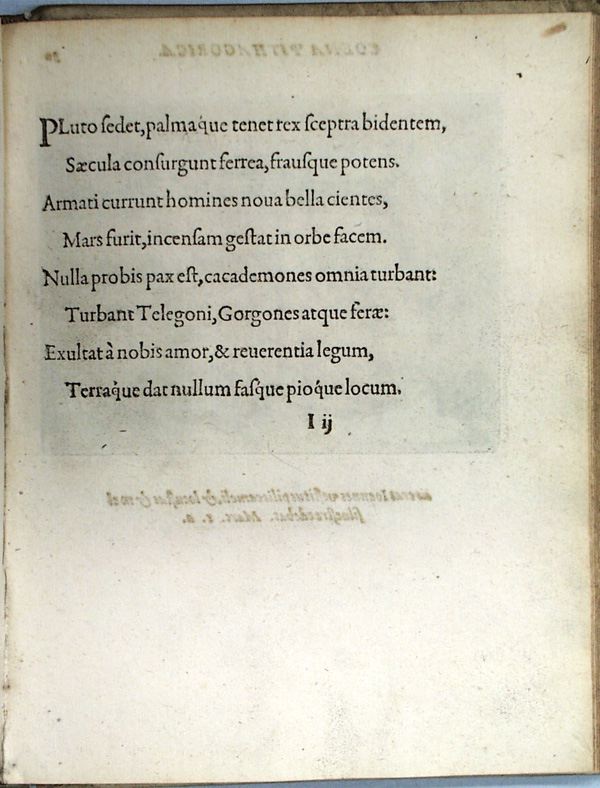 PLuto ſedet, palmaq́ue tenet rex ſceptra bidentem,
Sæcula conſurgunt ferrea, frauſque potens.
Armati currunt homines noua bella cientes,
Mars furit, incenſam geſtat in orbe facem.
Nulla probis pax eſt, cacademones omnia turbant:
Turbant Telegoni, Gorgones atque feræ:
Exultat à nobis amor, & reuerentia legum,
Terraq́ue dat nullum faſque pioq́ue locum.
I ij